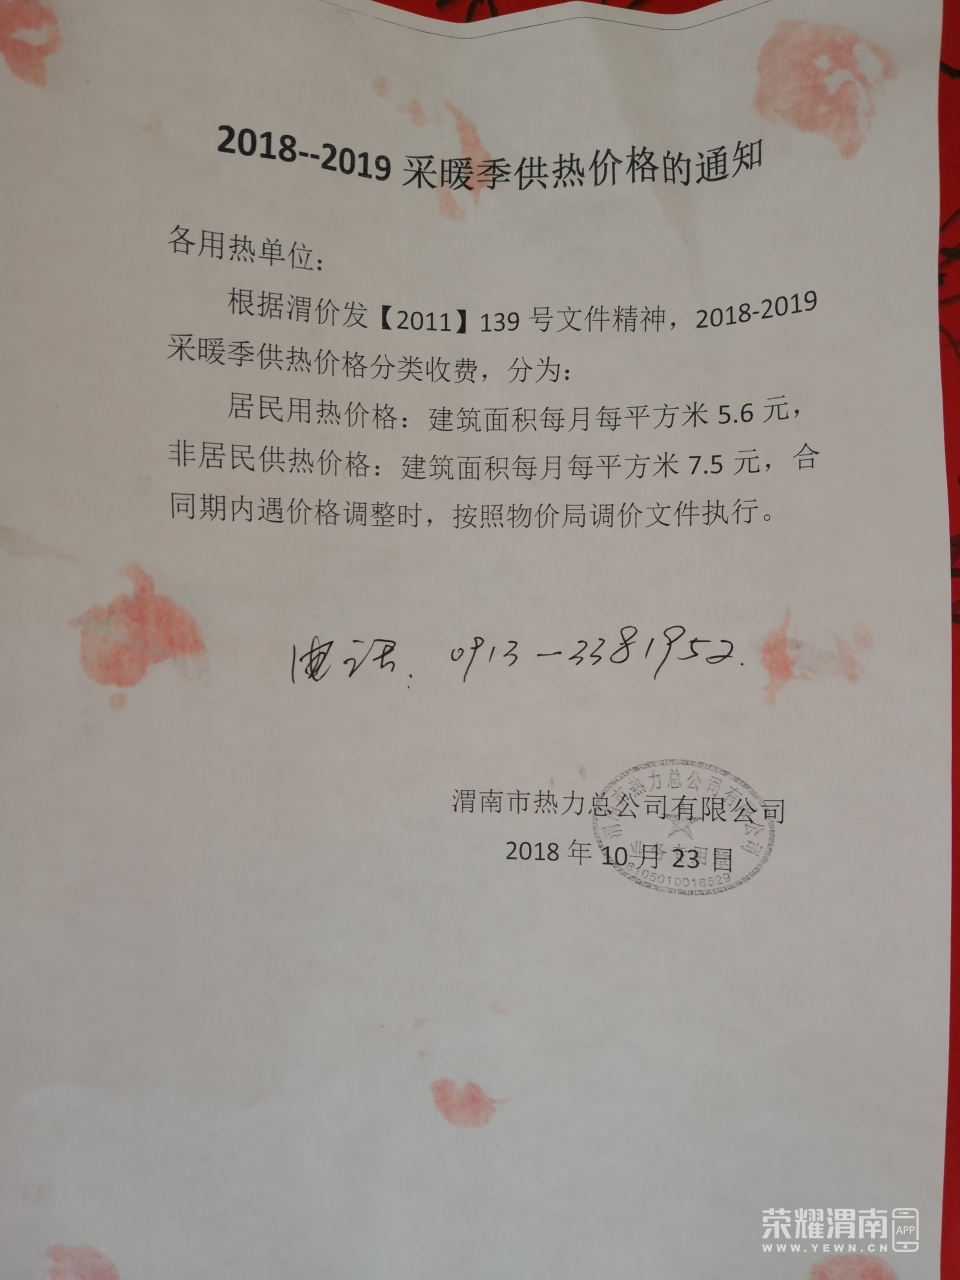 2018--2019 采暖季供热价格的通知
各用热单位：
根据渭价发【2011】139 号文件精神，2018-2019
采暖季供热价格分类收费，分为：
居民用热价格：建筑面积每月每平方米 5.6 元，
非居民供热价格：建筑面积每月每平方米 7.5 元，合
同期内遇价格调整时，按照物价局调价文件执行。
电话. 0913-3381952.
渭南市热力总公司有限公司
2018 年 10 月 23 日
渭南市热力总公司有限公司
业务专用章
6105010018529
荣耀渭南 APP
WWW.YEWN.CN